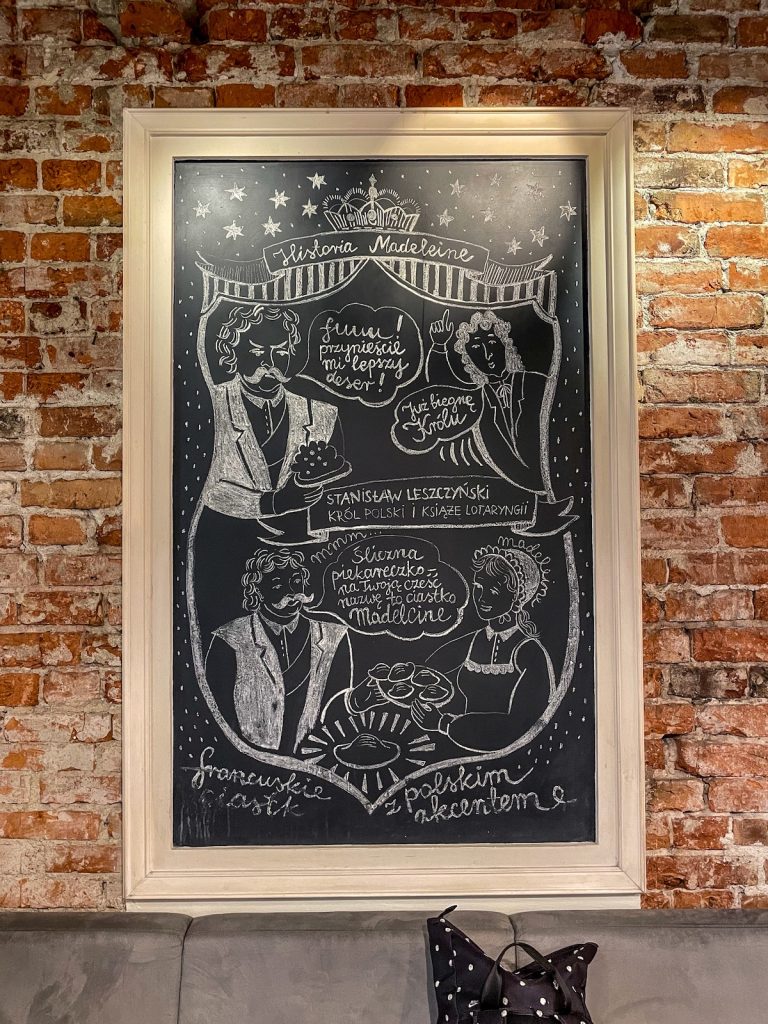 Historia Madeleine
fuuu!
przynieście
mi lepszy
deser!
Już biegnę
Królu
STANISŁAW LESZCZYŃSKI
KRÓL POLSKI I KSIĄŻE LOTARYNGII
mmm...
Śliczna
piekareczko-
na Twoją cześć
nazwę to ciastko
Madeleine
mado
francuskie
ciastk
z polskim
akcentem